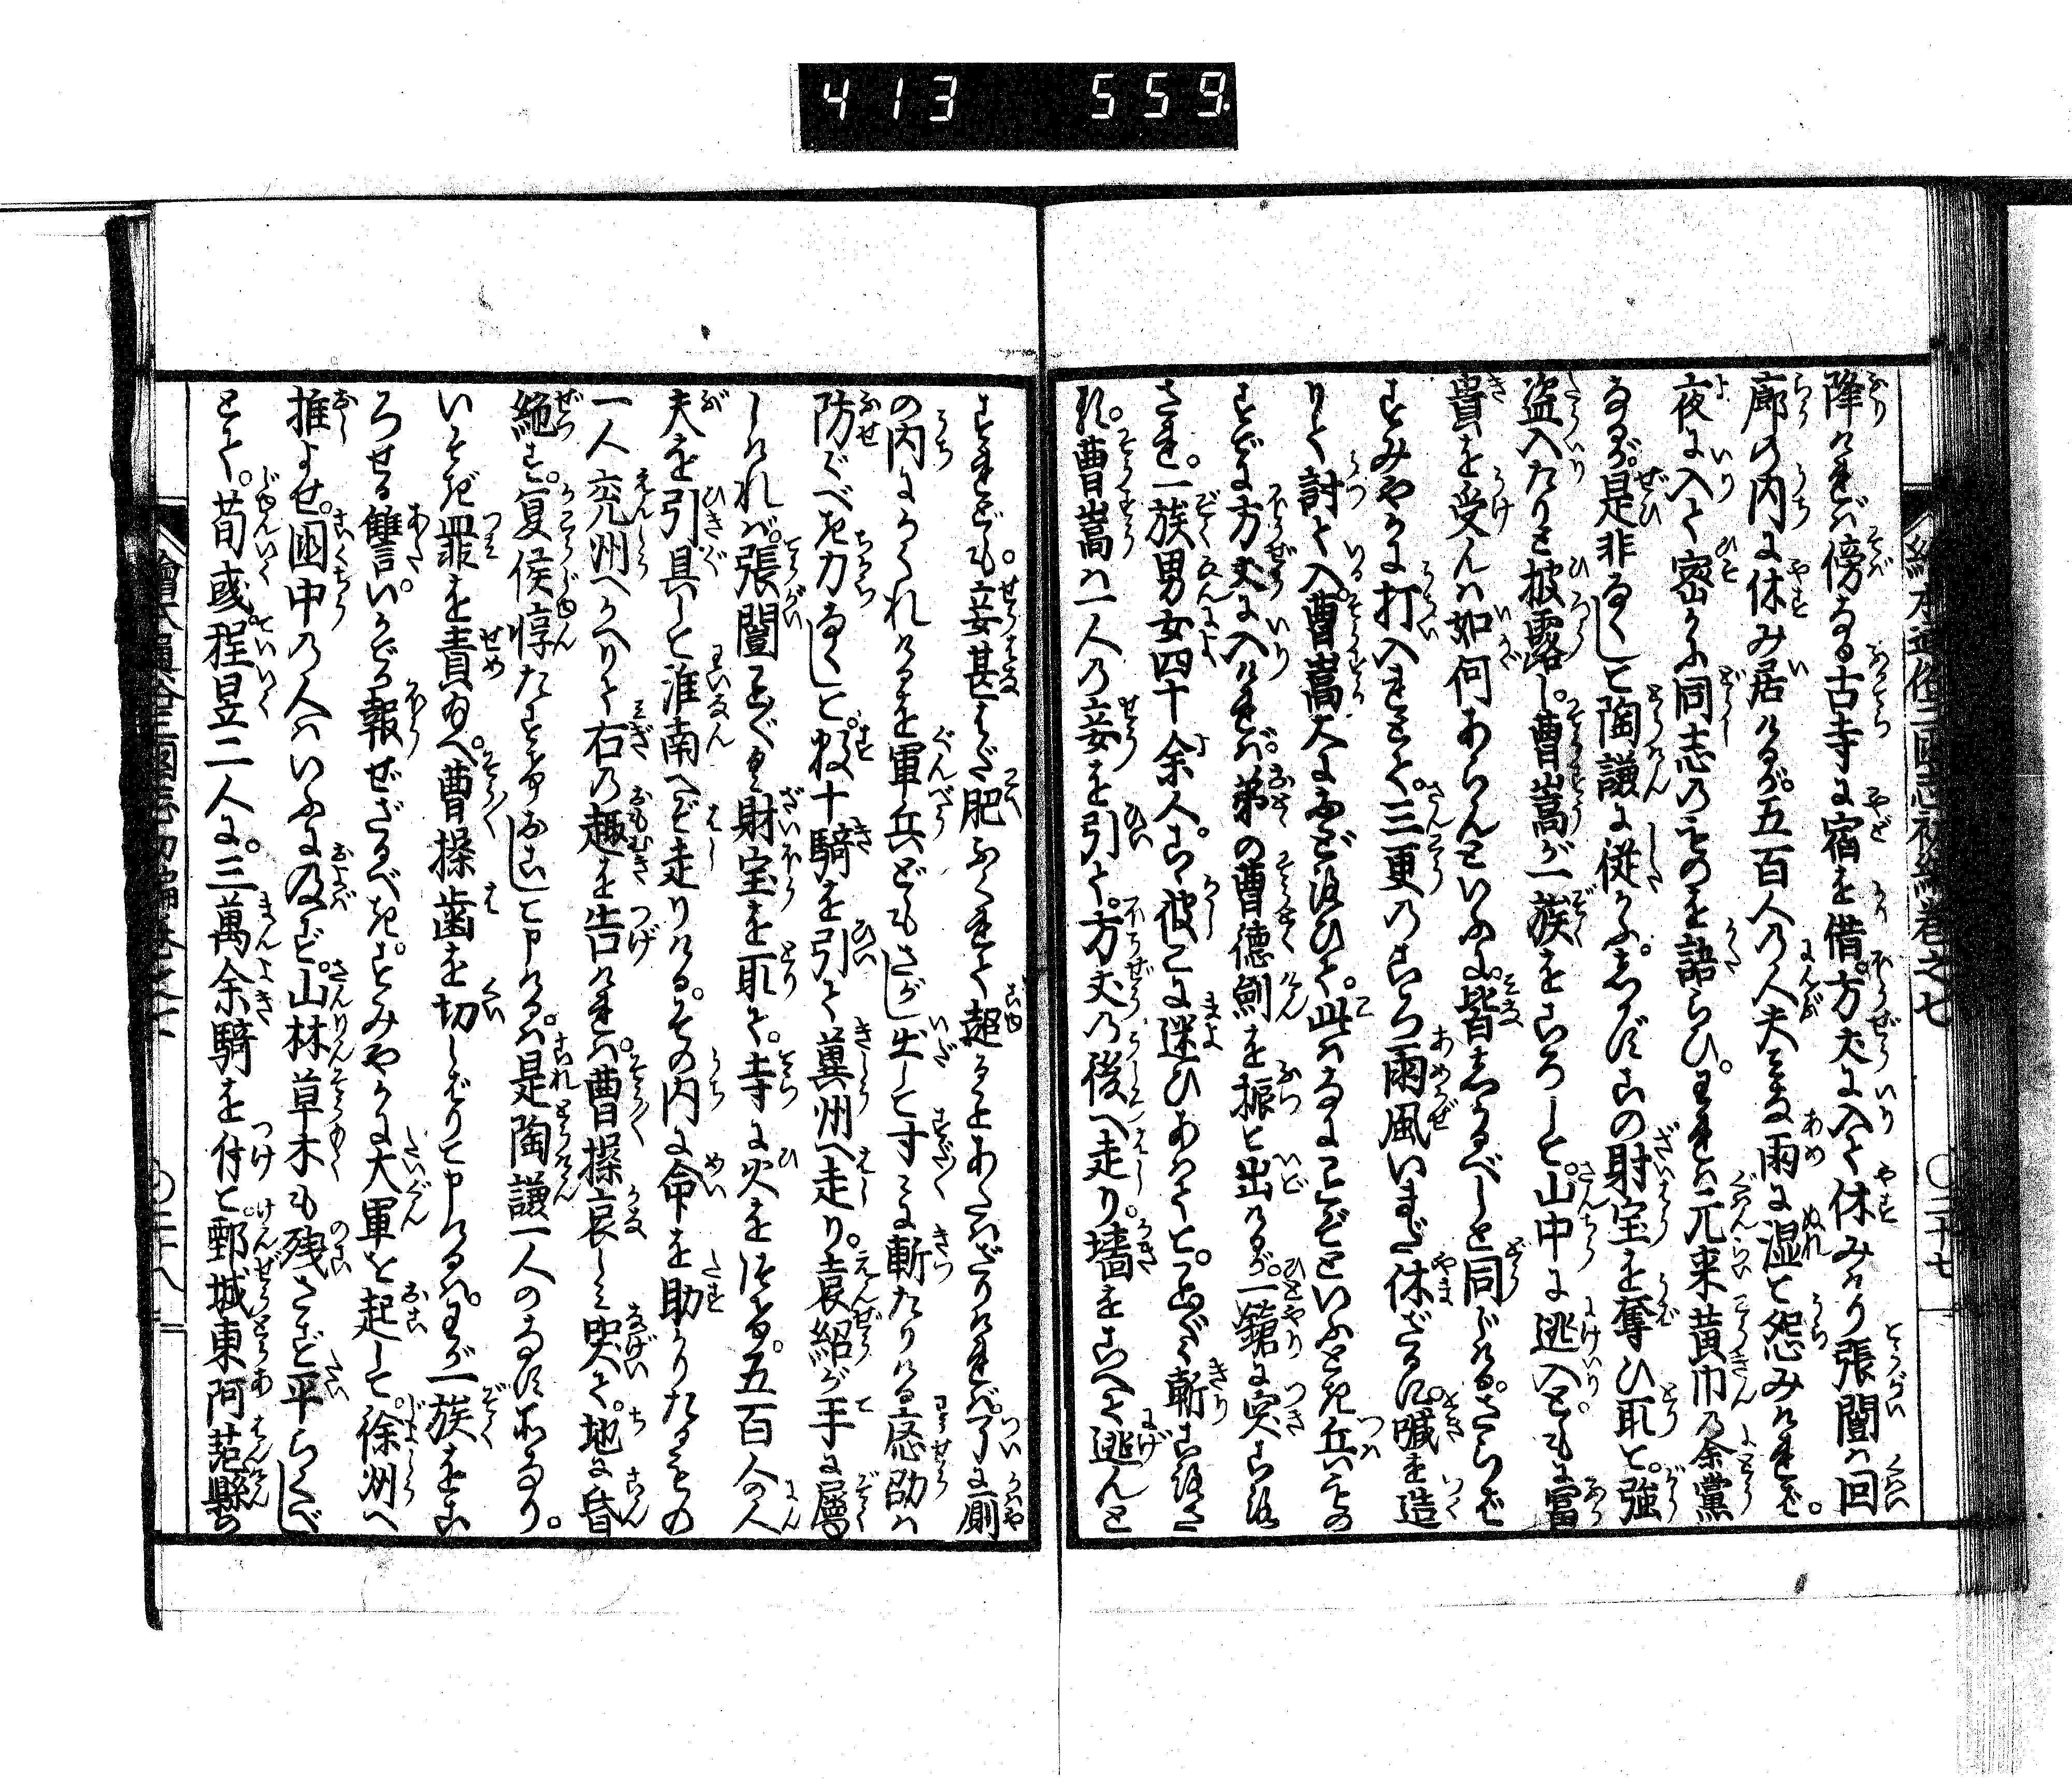 413 559
繪本通俗三國志初編巻之七 〇二十七
降ければ傍なる古寺に宿を借。方丈に入て休みけり張闓は回
廊の内に休み居けるが。五百人の人夫みな雨に湿て怨みければ。
夜に入て密かに同志のものを語らひ。われは元来黄巾の余黨
なるが。是非なくして陶謙に従がふ。今かれが此の財宝を奪ひ取て。強
盗入たりと披露し。曹嵩が一族をころして。山中に逃入。ともに富
貴を受んは如何あらんといふに。皆しかるべしと同じける。さらば
すみやかに打入れとて。三更のころ雨風いまだ休ざるに。喊を造
りて討て入。曹嵩大におどろひて。此はなにごとぞといふとき兵もの
すでに方丈に入ければ。弟の曹徳剣を振て出けるが。一鎗に突ころ
され。一族男女四十余人。こゝ彼こに迷ひあはて。こと〴〵く斬ころさ
れ。曹嵩は一人の妾を引て。方丈の後へ走り。墻をこへて逃んと
すれども。妾甚はだ肥ふくれて超ることあたはざりければ。了に厠
の内にかくれけるを軍兵どもさがし出して寸々に斬たりける應劭は
防ぐべき力なくして。数十騎を引て冀州へ走り。袁紹が手に屬
しけれバ。張闓こと〴〵く財宝を取て。寺に火をはなち。五百人の人
夫を引具して淮南へぞ走りける。その内に命を助かりたるもの
一人兗州へかへりて右の趣を告ければ。曹操哀しミ哭て。地に昏
絶す。夏侯惇たすけおこして申けるは。是陶謙一人のなす所なり。
いそぎ罪を責玉へ。曹操歯を切しばりて申けるは。わが一族をこ
ろせる讐言。いかでか報ぜざるべき。すみやかに大軍を起して。徐州へ
推よせ。国中の人はいふに及ばず。山林草木も残さず平らぐべし
とて。荀彧。程昱二人に。三萬余騎を付て。鄄城東阿范縣の
繪本通俗三國志初編巻之七 〇二十八